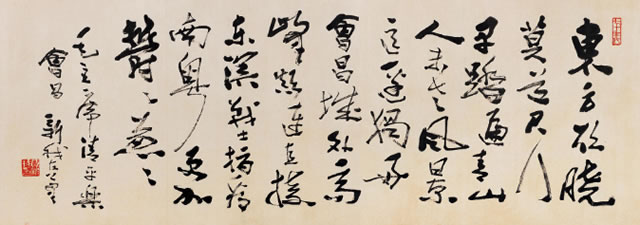 東方欲曉
莫道君行
早踏遍青山
人未老風景
這邊獨好
會昌城外高
峰顛連直接
東溟戰士指看
南粵更加
鬱々葱々
毛主席清平樂
會昌 新我左筆